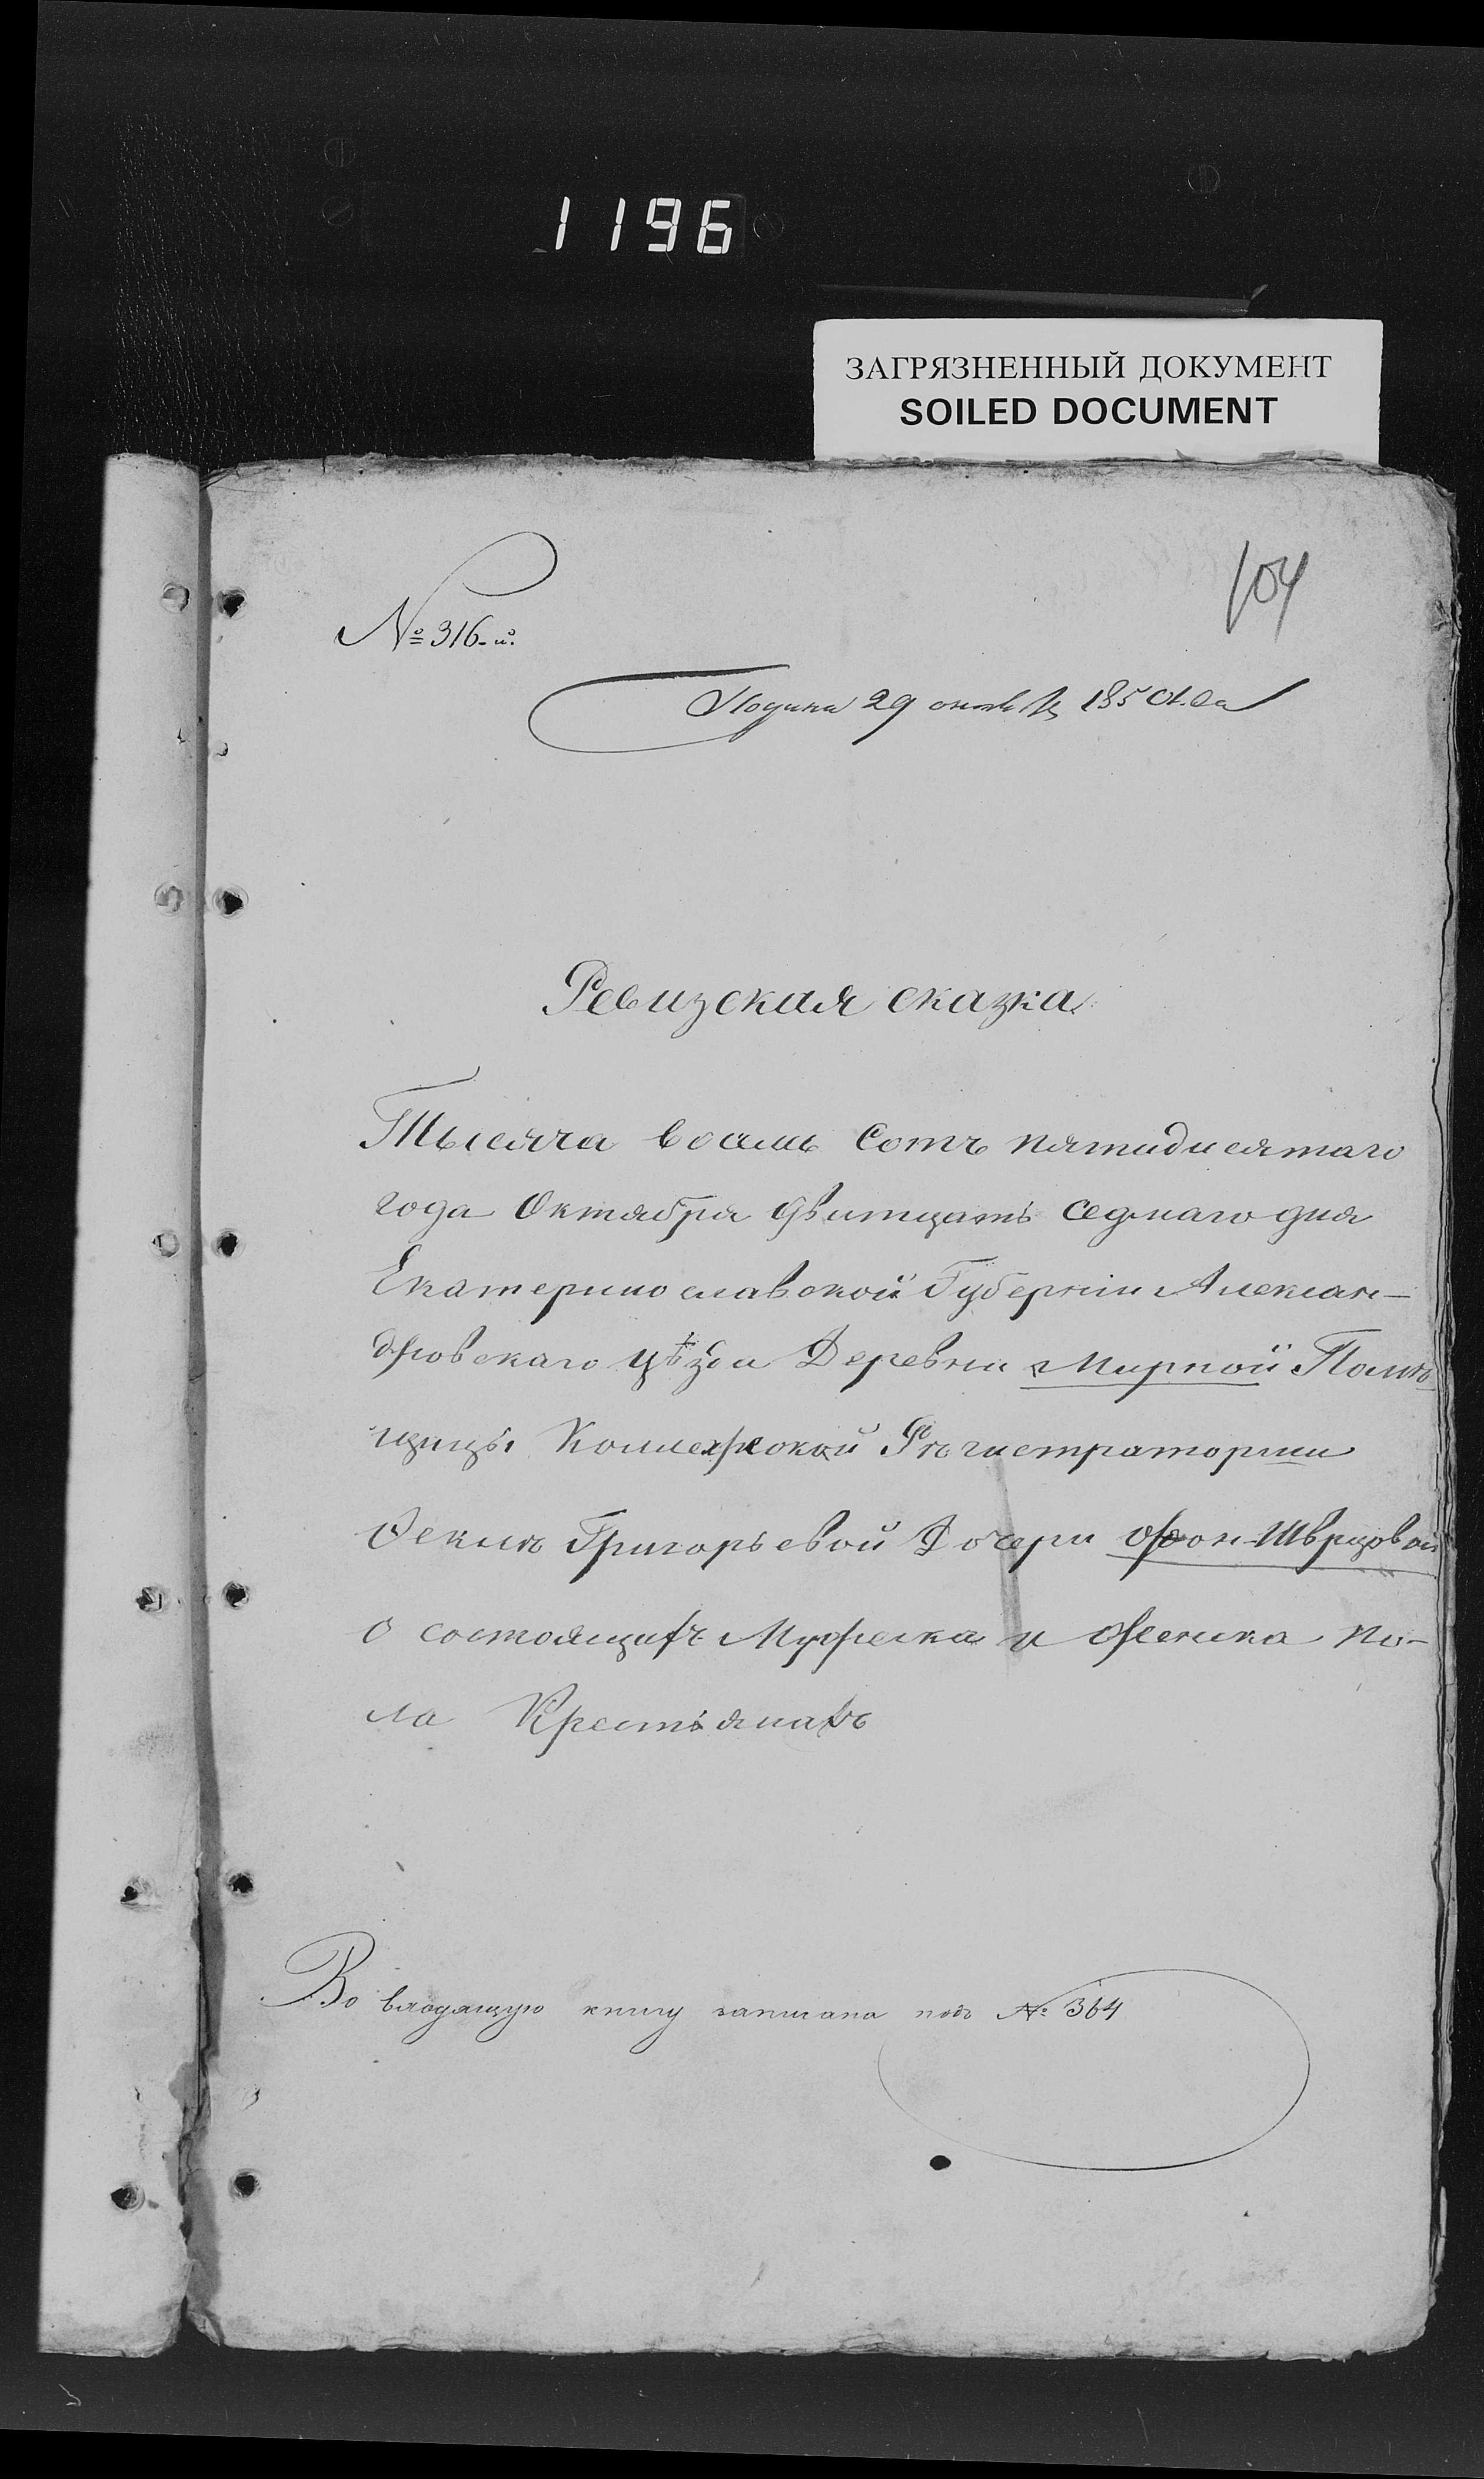 1196
ЗАГРЯЗНЕННЫЙ ДОКУМЕНТ
SOILED DOCUMENT
104
№ 316-й.
29 1850
Ревизская сказка
Тысяча восемь сотъ пятидисятаго
года Октября двитцать седмаго дня
Екатеринославской Губерніи Алексан-
дровскаго уѣзда Деревни Мирной Помѣ-
щицы Коллежской Рѣгистраторши
Григорьевой Дочери фон-Шврцовой
о состоящихъ Мужеска и женска по-
ла Крестьянахъ
Во входящую книгу записана подъ № 364